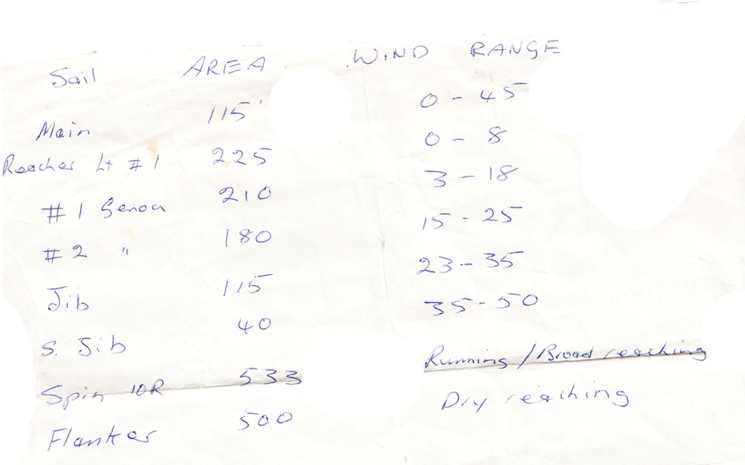 Sail AREA WIND RANGE
Main 115' 0 - 45
Reacher Lt #1 225 0 - 8
#1 Genoa 210 3 - 18
#2 " 180 15 - 25
Jib 115 23 - 35
S. Jib 40 35 - 50
Spin 10R 533 Running / Broad reaching
Flanker 500 Dry reaching